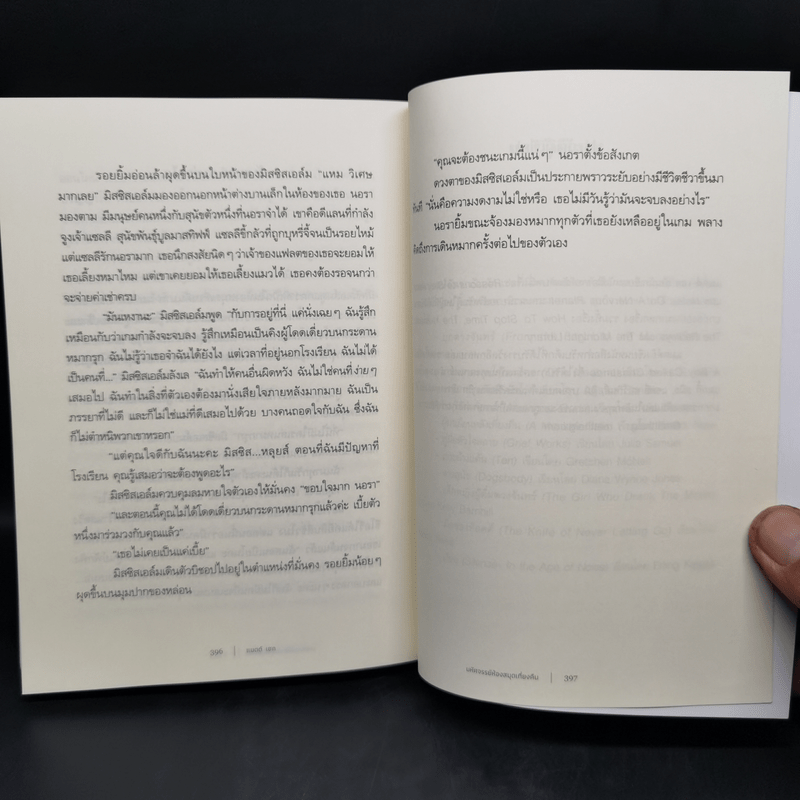 รอยยิ้มอ่อนล้าผุดขึ้นบนใบหน้าของมิสซิสเอล์ม "แหม วิเศษ
มากเลย" มิสซิสเอล์มมองออกนอกหน้าต่างบานเล็กในห้องของเธอ นอรา
มองตาม มีมนุษย์คนหนึ่งกับสุนัขตัวหนึ่งที่นอราจำได้ เขาคือดีแลนที่กำลัง
จูงเจ้าแซลลี สุนัขพันธุ์บูลมาสทิฟฟ์ แซลลีขี้กลัวที่ถูกบุหรี่จี้จนเป็นรอยไหม้
แต่แซลลีรักนอรามาก เธอนึกสงสัยนิด ๆ ว่าเจ้าของแฟลตของเธอจะยอมให้
เธอเลี้ยงหมาไหม แต่เขาเคยยอมให้เธอเลี้ยงแมวได้ เธอคงต้องรอจนกว่า
จะจ่ายค่าเช่าครบ
"มันเหงานะ" มิสซิสเอล์มพูด "กับการอยู่ที่นี่ แค่นั่งเฉย ๆ ฉันรู้สึก
เหมือนกับว่าเกมกำลังจะจบลง รู้สึกเหมือนเป็นคิงผู้โดดเดี่ยวบนกระดาน
หมากรุก ฉันไม่รู้ว่าเธอจำฉันได้ยังไง แต่เวลาที่อยู่นอกโรงเรียน ฉันไม่ได้
เป็นคนที่..." มิสซิสเอล์มลังเล "ฉันทำให้คนอื่นผิดหวัง ฉันไม่ใช่คนที่ง่าย ๆ
เสมอไป ฉันทำในสิ่งที่ตัวเองต้องมานั่งเสียใจภายหลังมากมาย ฉันเป็น
ภรรยาที่ไม่ดี และก็ไม่ใช่แม่ที่ดีเสมอไปด้วย บางคนถอดใจกับฉัน ซึ่งฉัน
ก็ไม่ตำหนิพวกเขาหรอก"
"แต่คุณใจดีกับฉันนะคะ มิสซิส...หลุยส์ ตอนที่ฉันมีปัญหาที่
โรงเรียน คุณรู้เสมอว่าจะต้องพูดอะไร"
มิสซิสเอล์มควบคุมลมหายใจตัวเองให้มั่นคง "ขอบใจมาก นอรา"
"และตอนนี้คุณไม่ได้โดดเดี่ยวบนกระดานหมากรุกแล้วค่ะ เบี้ยตัว
หนึ่งมาร่วมวงกับคุณแล้ว"
"เธอไม่เคยเป็นแค่เบี้ย"
มิสซิสเอล์มเดินตัวบิชอปไปอยู่ในตำแหน่งที่มั่นคง รอยยิ้มน้อย ๆ
ผุดขึ้นบนมุมปากของหล่อน
396 | แมตต์ เฮก
"คุณจะต้องชนะเกมนี้แน่ ๆ" นอราตั้งข้อสังเกต
ดวงตาของมิสซิสเอล์มเป็นประกายพราวระยับอย่างมีชีวิตชีวาขึ้นมา
ทันที "นั่นคือความงดงามไม่ใช่หรือ เธอไม่มีวันรู้ว่ามันจะจบลงอย่างไร"
นอรายิ้มขณะจ้องมองหมากทุกตัวที่เธอยังเหลืออยู่ในเกม พลาง
คิดถึงการเดินหมากครั้งต่อไปของตัวเอง
มหัศจรรย์ห้องสมุดเที่ยงคืน | 397